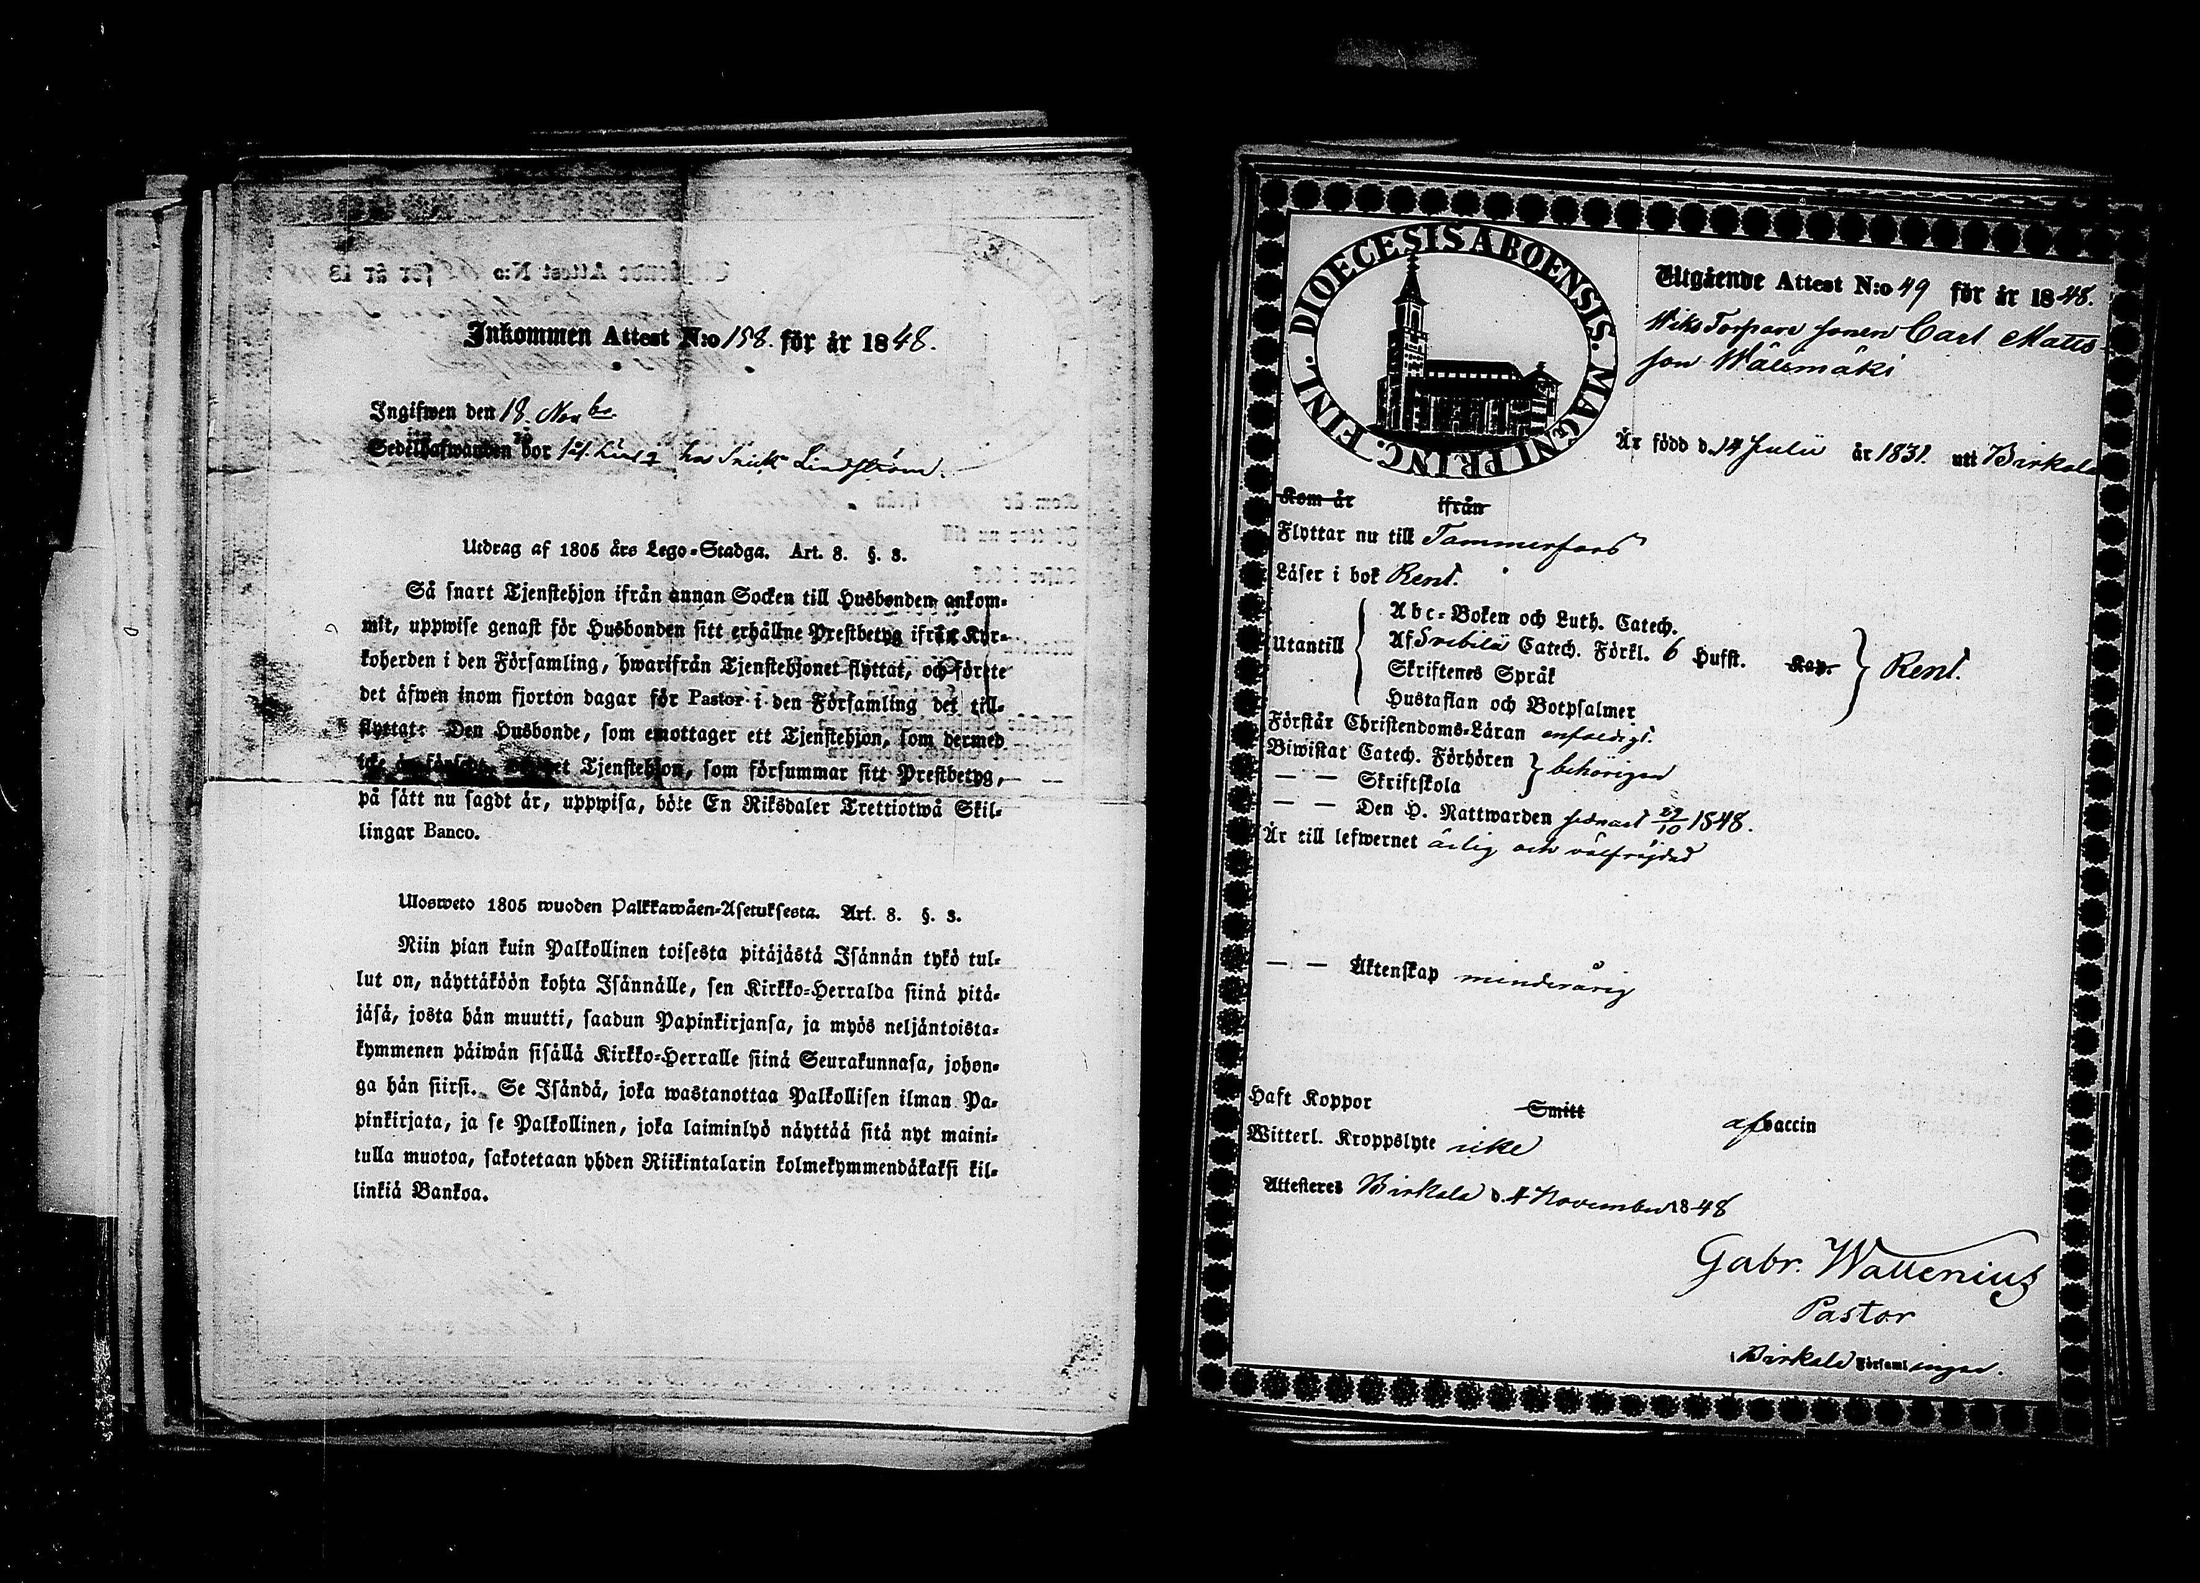 Inkommen Attest N:o 158. för år 1848.
Ingifwen den 18. Novbr
Sedelhafwanden bor hos Lindström.
Utdrag af 1805 års Lego-Stadga. Art. 8. §. 3.
Så snart Tjenstehjon ifrån annan Socken till Husbonden ankom-
mit, uppwise genast för Husbonden sitt erhållne Prestbetyg ifrån Kyr-
koherden i den Församling, hwarifrån Tjenstehjonet flyttat, och förete
det äfwen inom fjorton dagar för Pastor i den Församling det till-
flyttat: Den Husbonde, som emottager ett Tjenstehjon, som dermed
icke är försedt, Tjenstehjon, som försummar sitt Prestbetyg,
på sätt nu sagdt är, uppwisa, böte En Riksdaler Trettiotwå Skil-
lingar Banco.
Ulosweto 1805 wuoden Palkkawäen-Asetuksesta. Art. 8. §. 3.
Niin pian kuin Palkollinen toisesta pitäjästä Isännän tykö tul-
lut on, näyttäköön kohta Isännälle, sen Kirkko-Herralda siinä pitä-
jäsä, josta hän muutti, saadun Papinkirjansa, ja myös neljäntoista-
kymmenen päiwän sisällä Kirkko-Herralle siinä Seurakunnasa, johon-
ga hän siirsi. Se Isändä, joka wastanottaa Palkollisen ilman Pa-
pinkirjata, ja se Palkollinen, joka laiminlyö näyttää sitä nyt maini-
tulla muotoa, sakotetaan yhden Riikintalarin kolmekymmendäkaksi kil-
linkiä Bankoa.
DIOECESIS ABOENSIS. MAGNI PRINC. FINL.
Utgående Attest N:o 49 för år 1848.
Wiks Torpare sonen Carl Matts-
son Wälimäki
Är född d. 14 Julii år 1831. uti Birkala
Kom år ifrån
Flyttar nu till Tammerfors
Läser i bok Rent.
Utantill
Abc-Boken och Luth. Catech.
Af Svebilii Catech. Förkl. 6 Hufst. Kap.
Skriftenes Språk
Hustaflan och Botpsalmer
Rent.
Förstår Christendoms-Läran enfaldigt.
Biwistat Catech. Förhören
— — Skriftskola
behörigen
— — Den H. Nattwarden sednast 29/10 1848.
Är till lefwernet ärlig och välfrejdad
— — Äktenskap minderårig
Haft Koppor Smitt af vaccin
Witterl. Kroppslyte icke
Attesteres Birkala d. 4 November 1848
Gabr. Wallenius
Pastor
Birkala Församlingen.